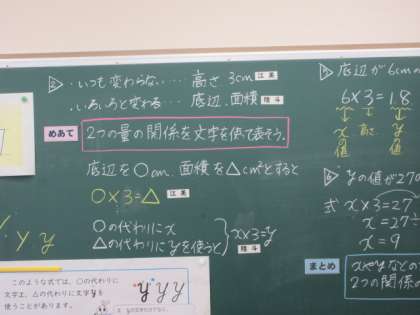 ② ・いつも変わらない…高さ 3cm 江美
・いろいろと変わる…底辺、面積 陸斗
めあて 2つの量の関係を文字を使って表そう。
底辺を○cm 面積を△cm²とすると
○×3=△ 江美
○の代わりにx
△の代わりにyを使うと
x×3=y 陸斗
y y y
このような式では、○の代わりに
文字x、△の代わりに文字yを
使うことがあります。
y y y
底辺が6cm
6×3=18
x 高さ y
値 値
yの値が270
式 x×3=27
x=27÷
x=9
まとめ
xやyなどの
2つの関係